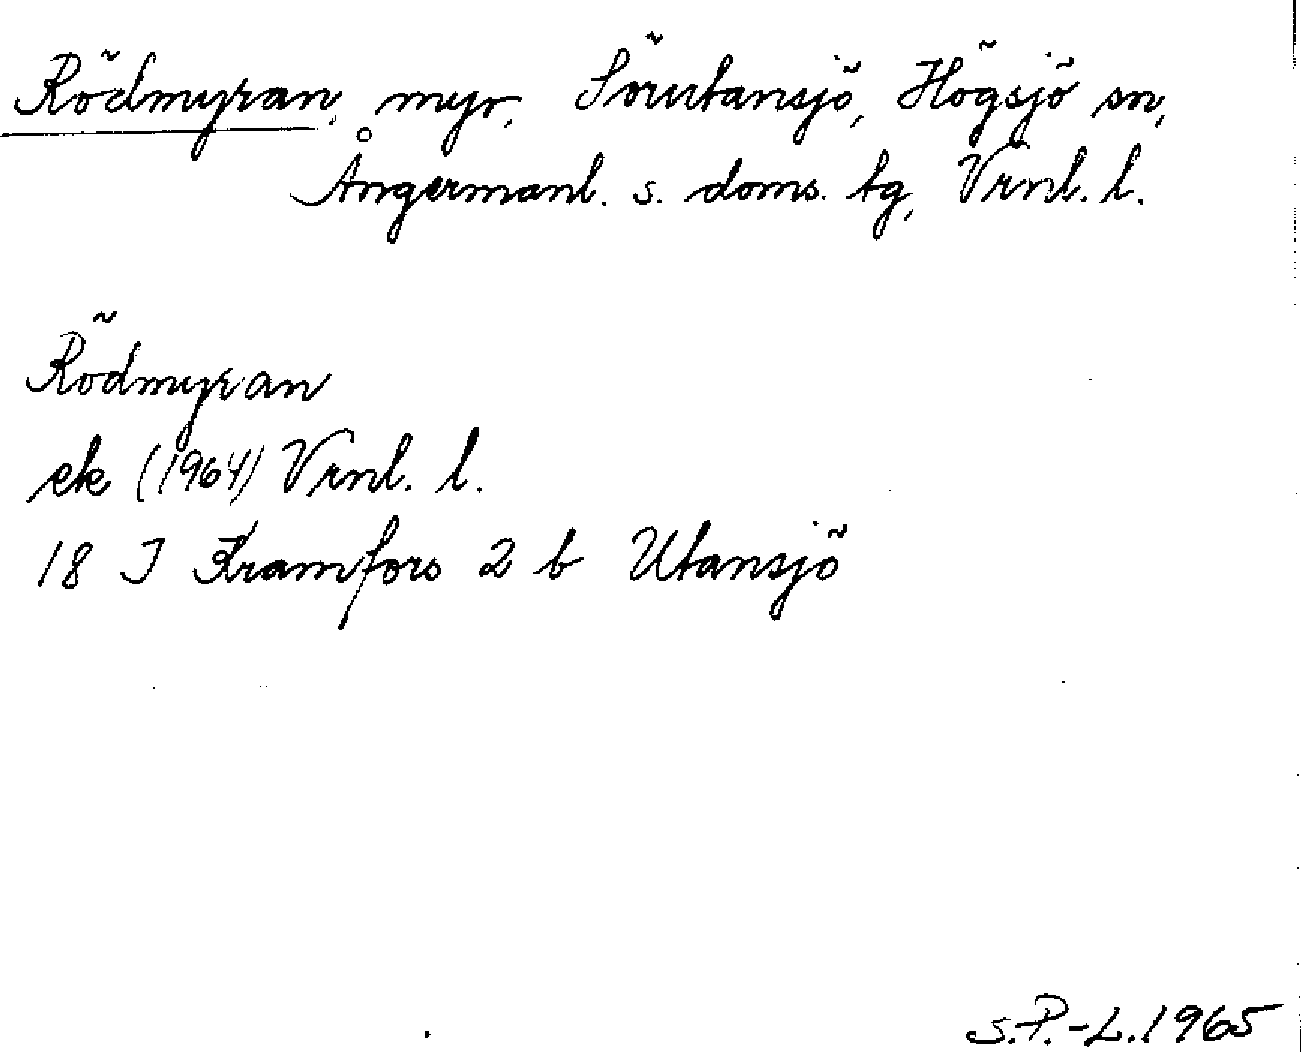 Rödmyran, myr, Sörutansjö, Högsjö sn,
Ångermanl. s. doms. tg, Vrnl. l.
Rödmyran
ek (1964) Vrnl. l.
18 I Kramfors 2 b Utansjö
S.P.-L. 1965